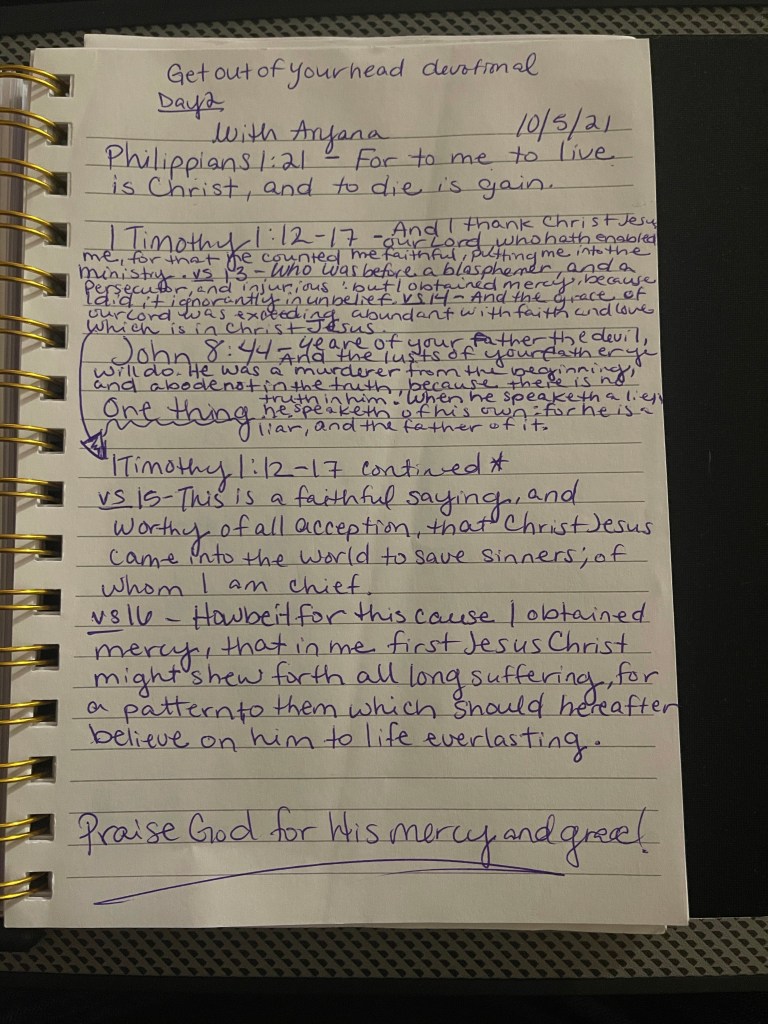 Get out of your head devotional
Day 2
With Anjana 10/5/21
Philippians 1:21 - For to me to live
is Christ, and to die is gain.
1 Timothy 1:12-17 - And I thank Christ Jesus
our Lord, who hath enabled
me, for that he counted me faithful, putting me into the
ministry. vs 13 - Who was before a blasphemer, and a
persecutor, and injurious: but I obtained mercy, because
I did it ignorantly in unbelief. vs 14 - And the grace of
our Lord was exceeding abundant with faith and love
which is in Christ Jesus.
John 8:44 - ye are of your father the devil,
And the lusts of your father ye
will do. He was a murderer from the beginning,
and abode not in the truth, because there is no
truth in him. When he speaketh a lie,
One thing he speaketh of his own: for he is a
liar, and the father of it.
1 Timothy 1:12-17 contined *
vs 15 - This is a faithful saying, and
worthy of all acception, that Christ Jesus
came into the world to save sinners; of
whom I am chief.
vs 16 - Howbeit for this cause I obtained
mercy, that in me first Jesus Christ
might shew forth all long suffering, for
a pattern to them which should hereafter
believe on him to life everlasting.
Praise God for His mercy and grace!